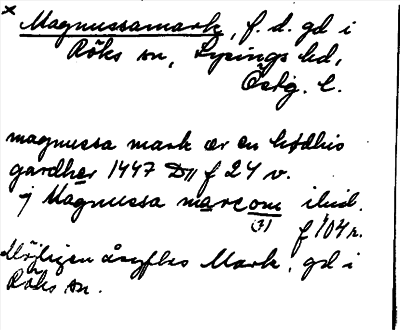 x Magnussamark, f. d. gd i
Röks sn, Lysings hd,
Östg. l.
magnussa mark ær en
gardher 1447 D11 f 24 v.
j Magnussa marcom ibid.
(3) f 104 r.
Möjligen åsyftas Mark, gd i
Röks sn.